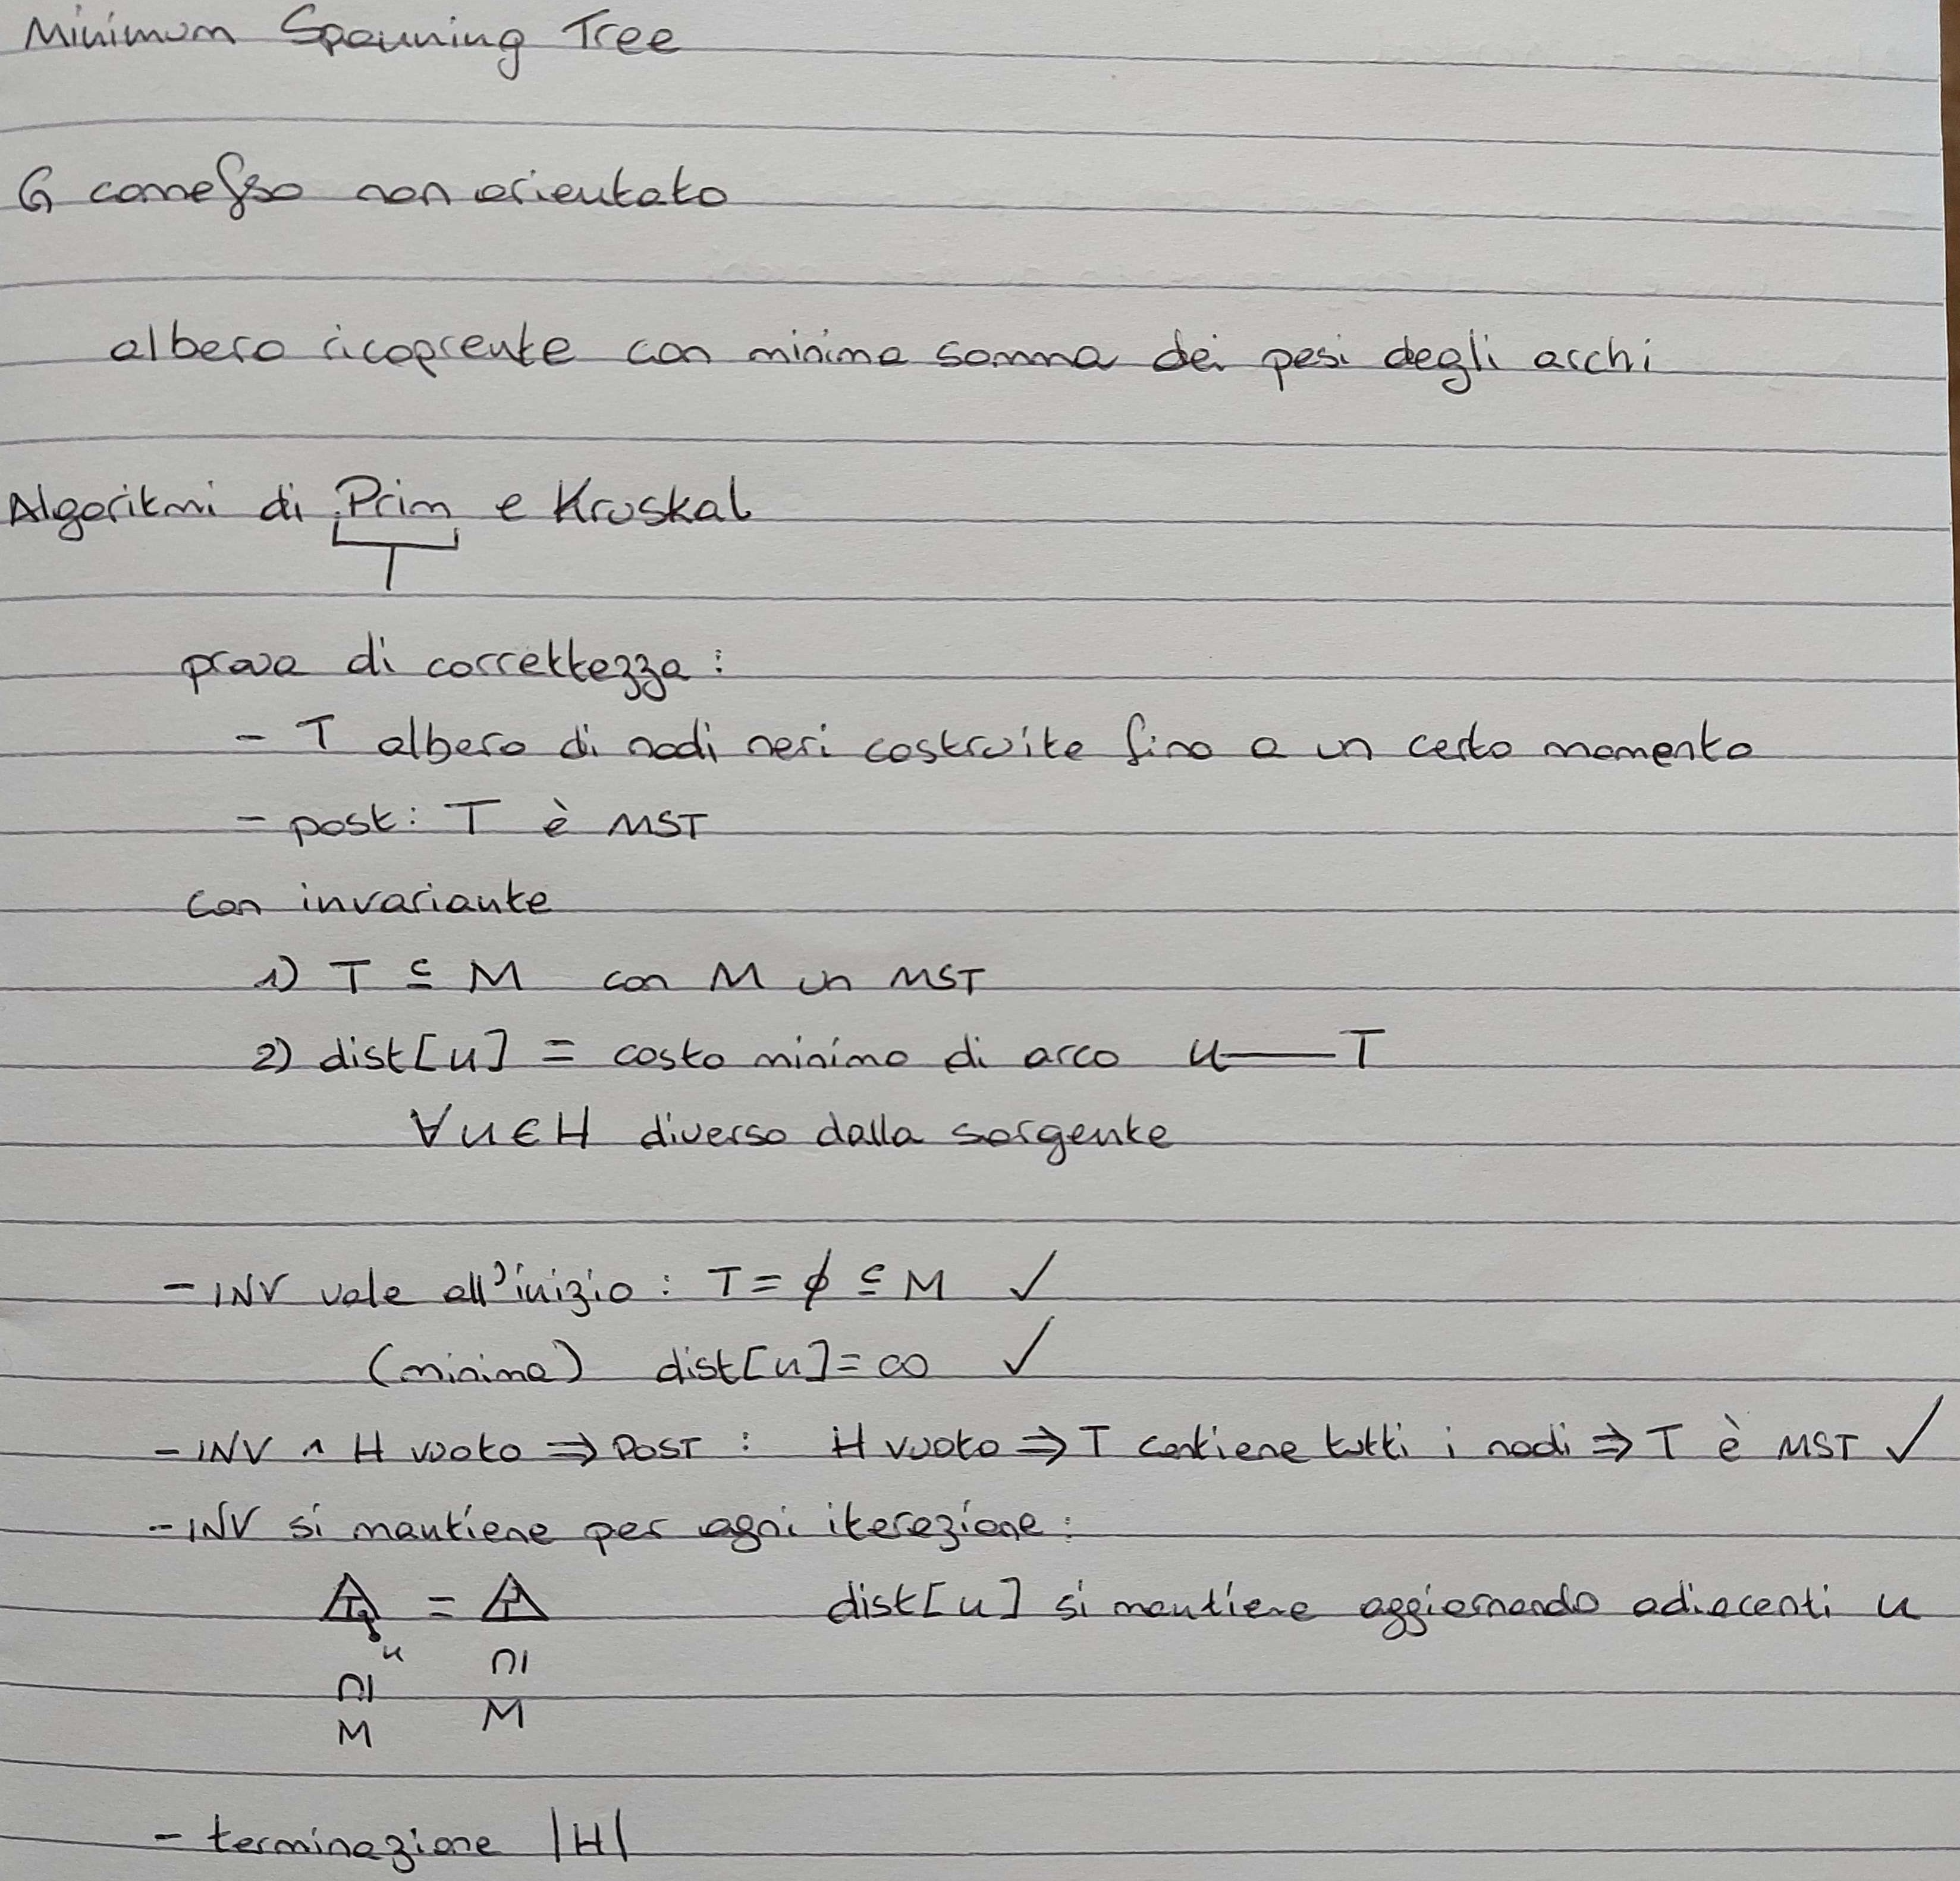 Minimum Spanning Tree
G connesso non orientato
albero ricoprente con minima somma dei pesi degli archi
Algoritmi di Prim e Kruskal
prova di correttezza:
- T albero di nodi neri costruito fino a un certo momento
- post: T è MST
con invariante
1) T ⊆ M con M un MST
2) dist[u] = costo minimo di arco u——T
∀u∈H diverso dalla sorgente
- INV vale all'inizio: T = ∅ ⊆ M ✓
(minima) dist[u] = ∞ ✓
- INV ∧ H vuoto ⇒ POST: H vuoto ⇒ T contiene tutti i nodi ⇒ T è MST ✓
- INV si mantiene per ogni iterazione:
T = T dist[u] si mantiene aggiornando adiacenti u
u
⊆ ⊆
M M
- terminazione |H|